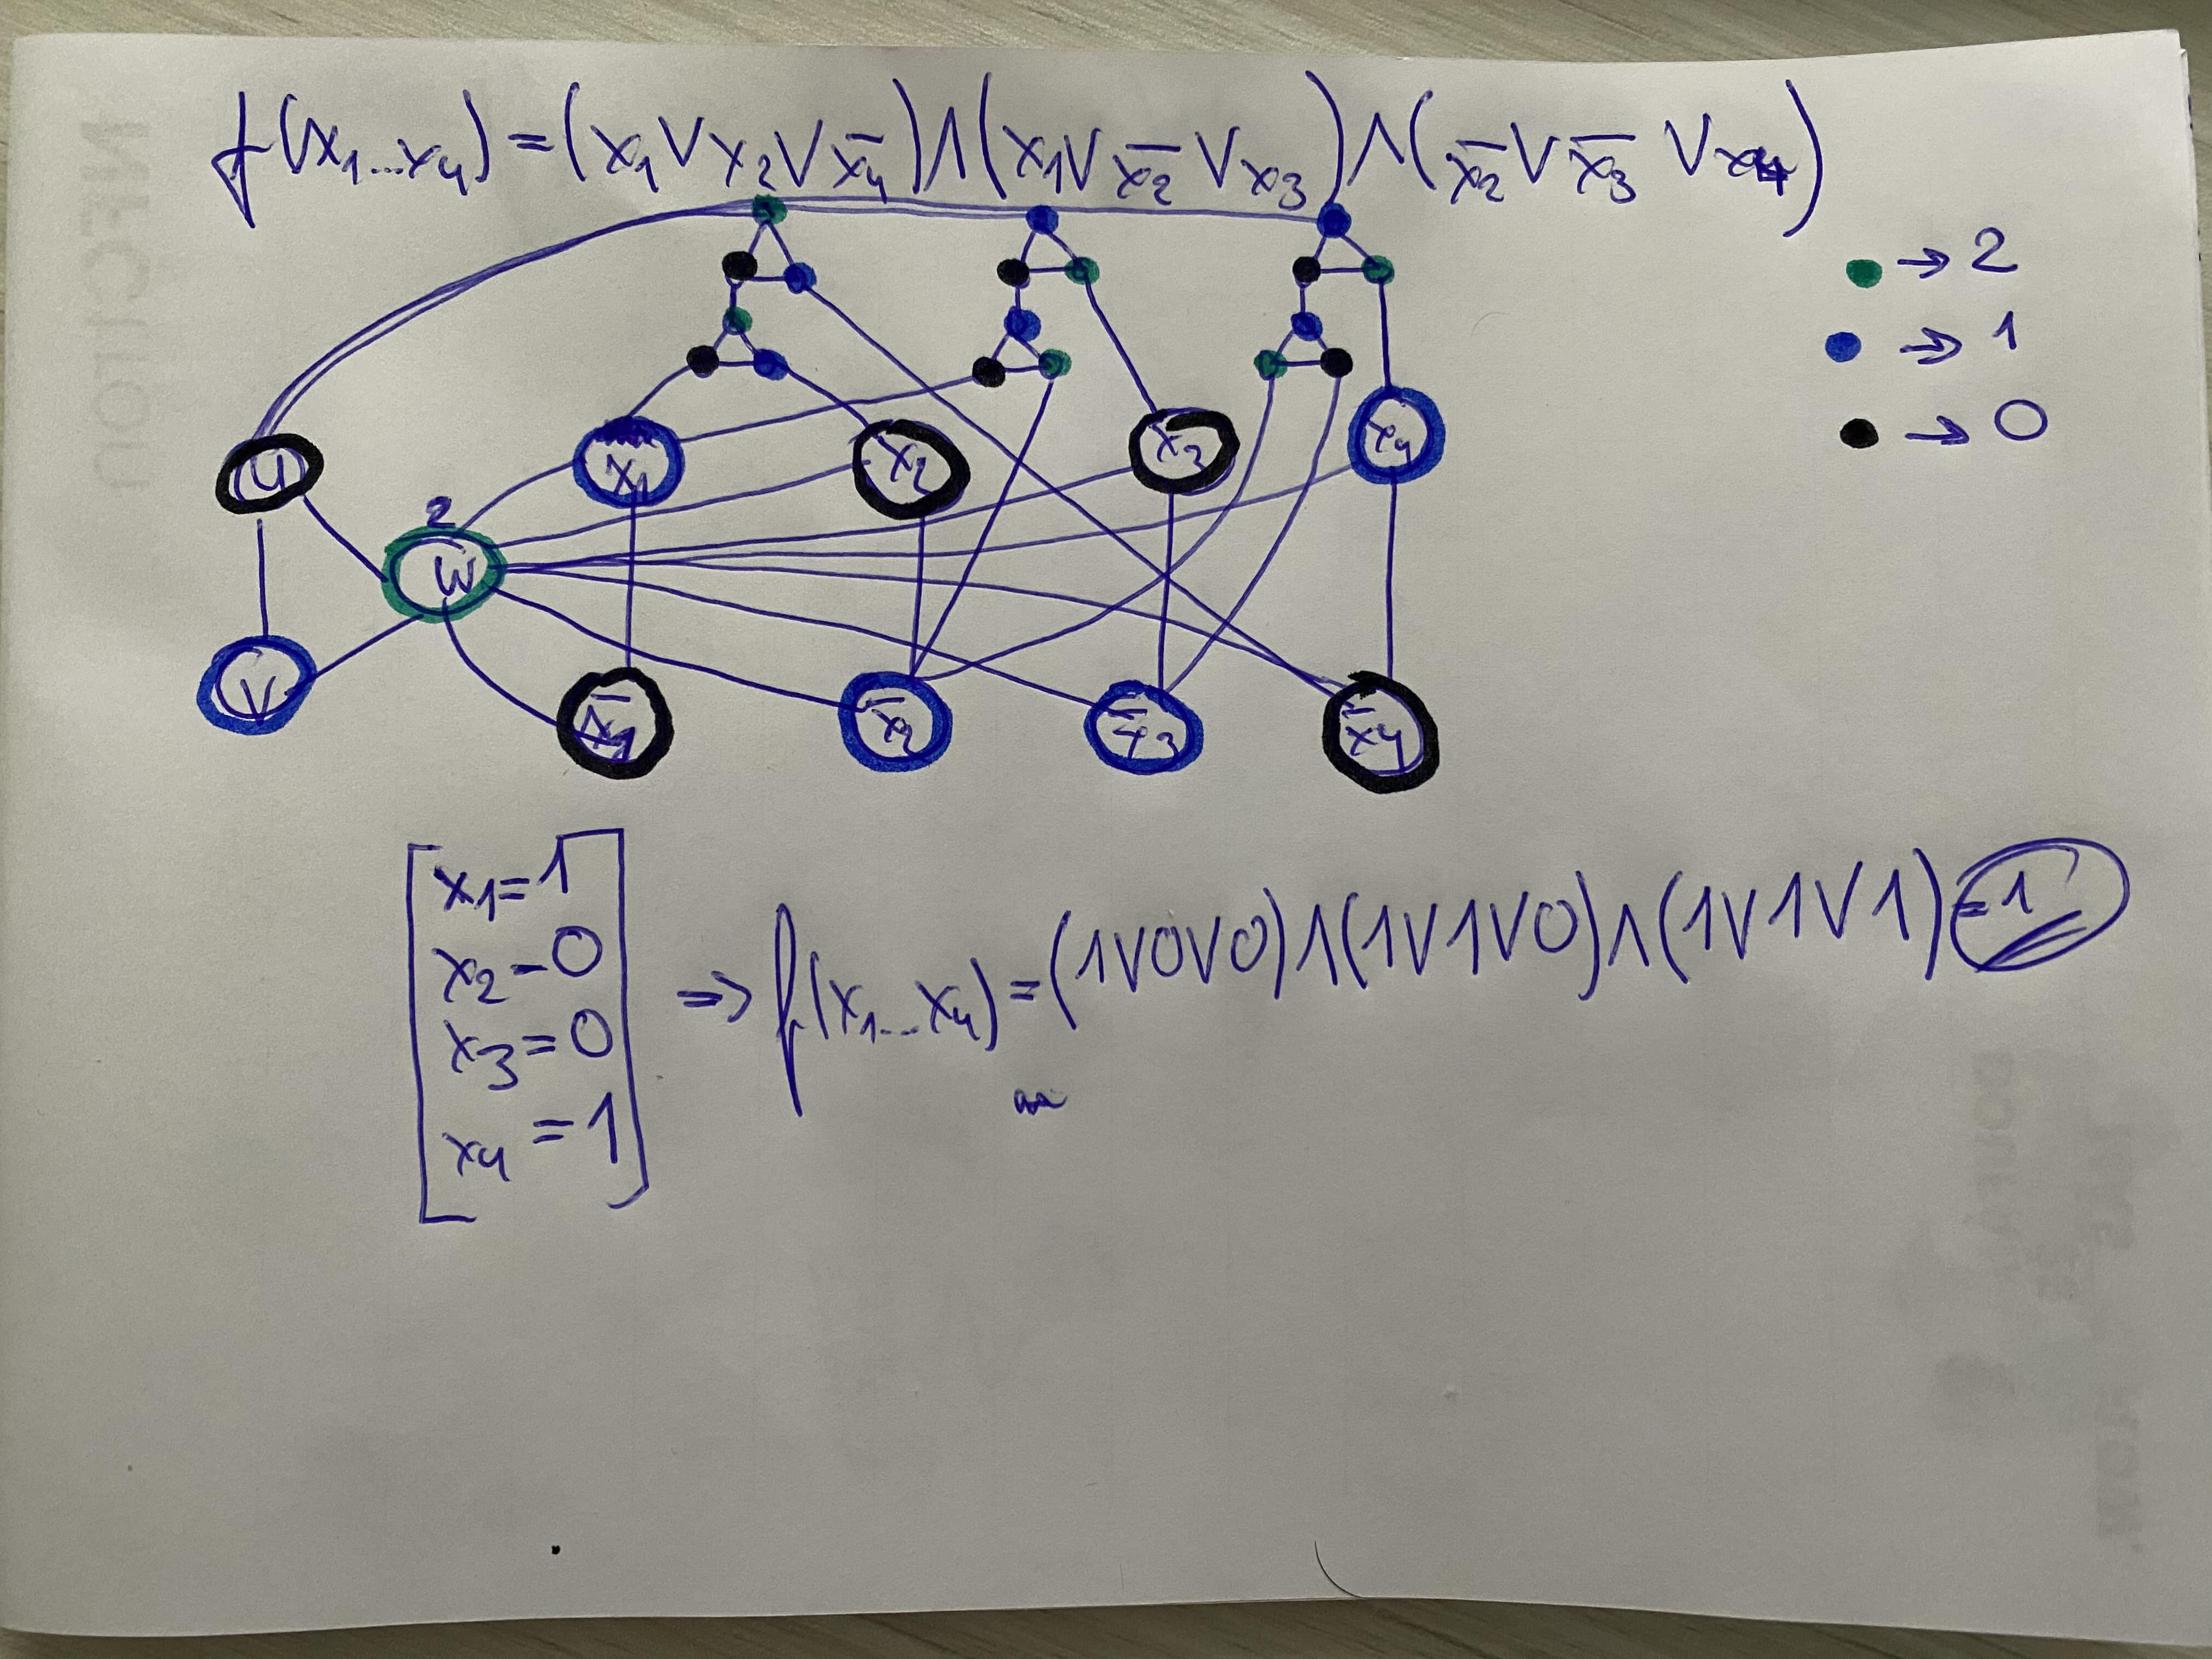 f(x₁...x₄) = (x₁ V x₂ V x̄₄) Λ (x₁ V x̄₂ V x₃) Λ (x̄₂ V x̄₃ V x₄)
→ 2
→ 1
→ 0
u x₁ x₂ x₃ x₄
2
w
v x̄₁ x̄₂ x̄₃ x̄₄
x₁ = 1
x₂ - 0
x₃ = 0
x₄ = 1
=> f(x₁...x₄) = (1V0V0) Λ (1V1V0) Λ (1V1V1) = 1